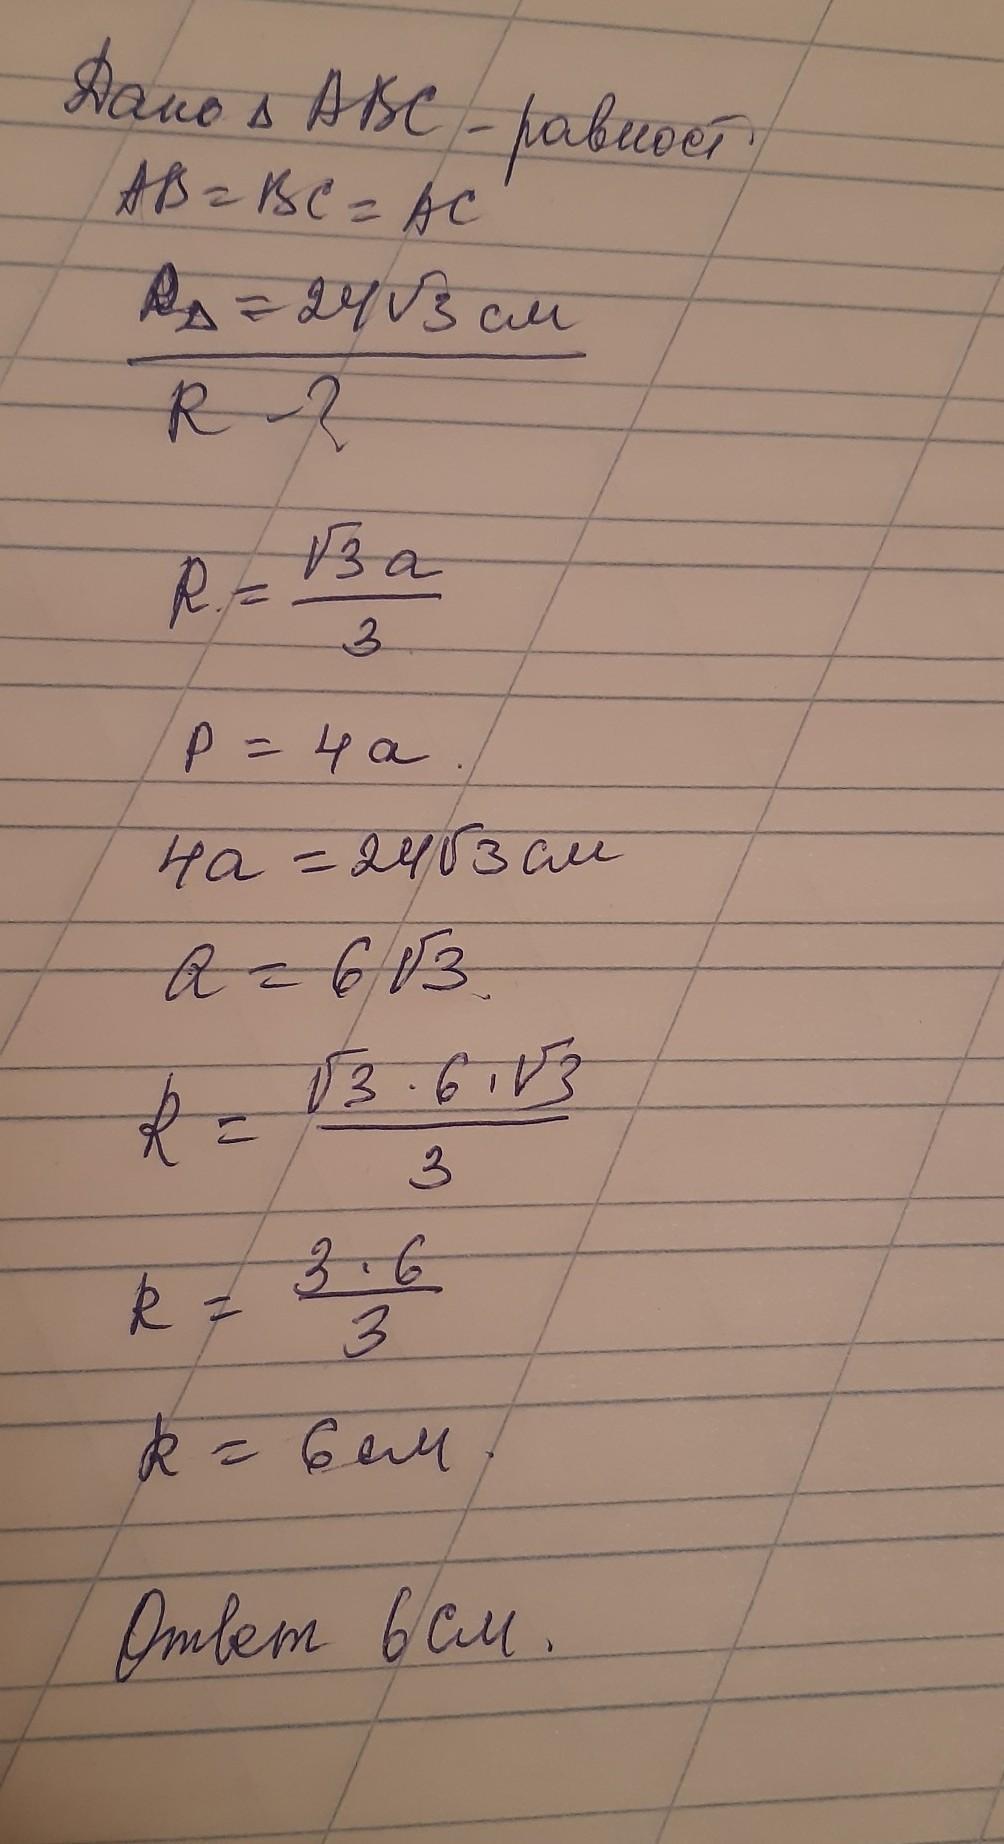 Дано Δ ABC - равност.
AB = BC = AC
P_Δ = 24√3 см
R - ?
R = √3 a / 3
P = 4a.
4a = 24√3 см
a = 6√3.
R = √3 · 6 · √3 / 3
R = 3 · 6 / 3
R = 6 см.
Ответ 6 см.